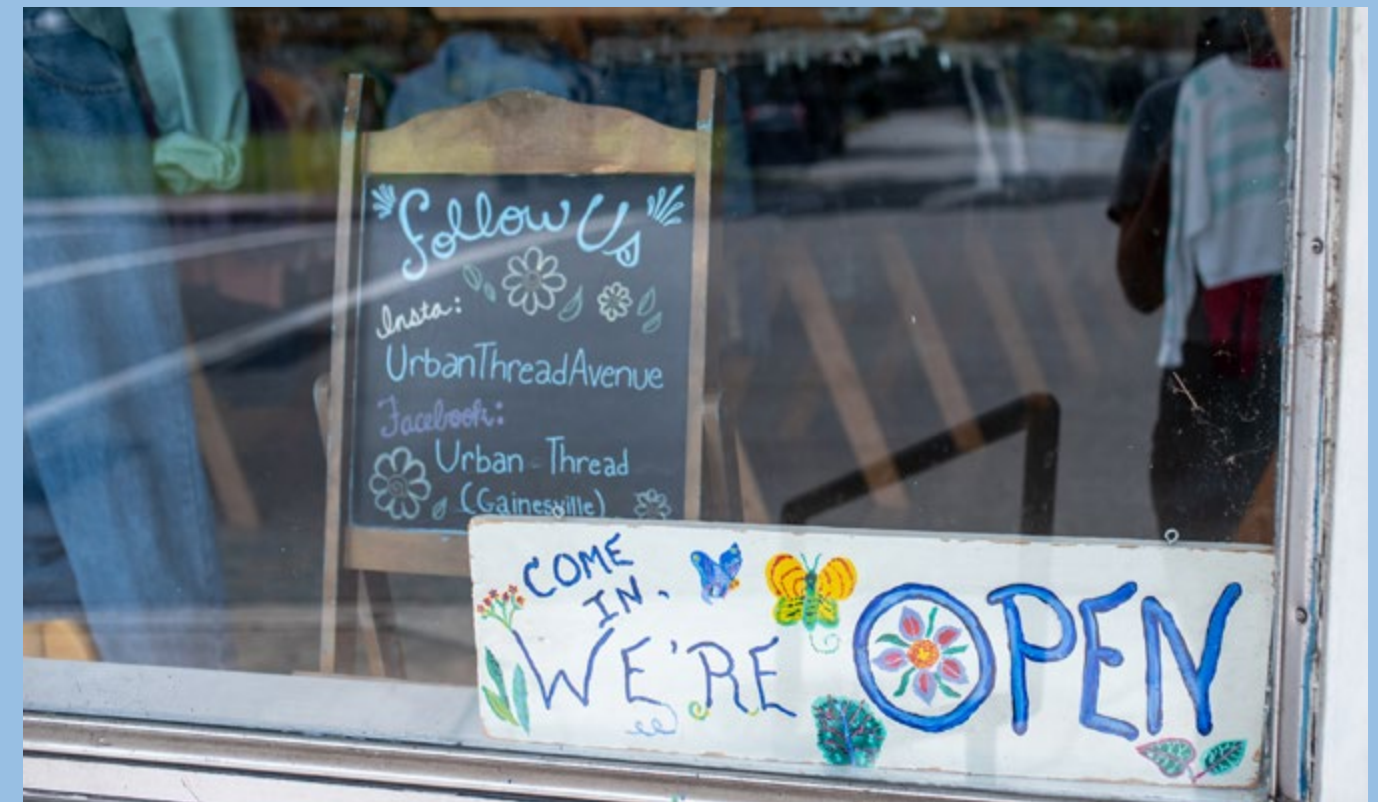 Follow Us
Insta:
UrbanThreadAvenue
Facebook:
Urban Thread
(Gainesville)
COME
IN.
WE'RE OPEN